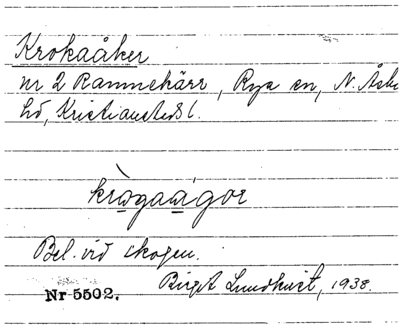 Krokaåker
nr 2 Rammekärr, Rya sn, N. Åsbo
hd, Kristianstads l.
krògaágor
Bel. vid skogen.
Birgit Lundkvist, 1938.
Nr 5502.